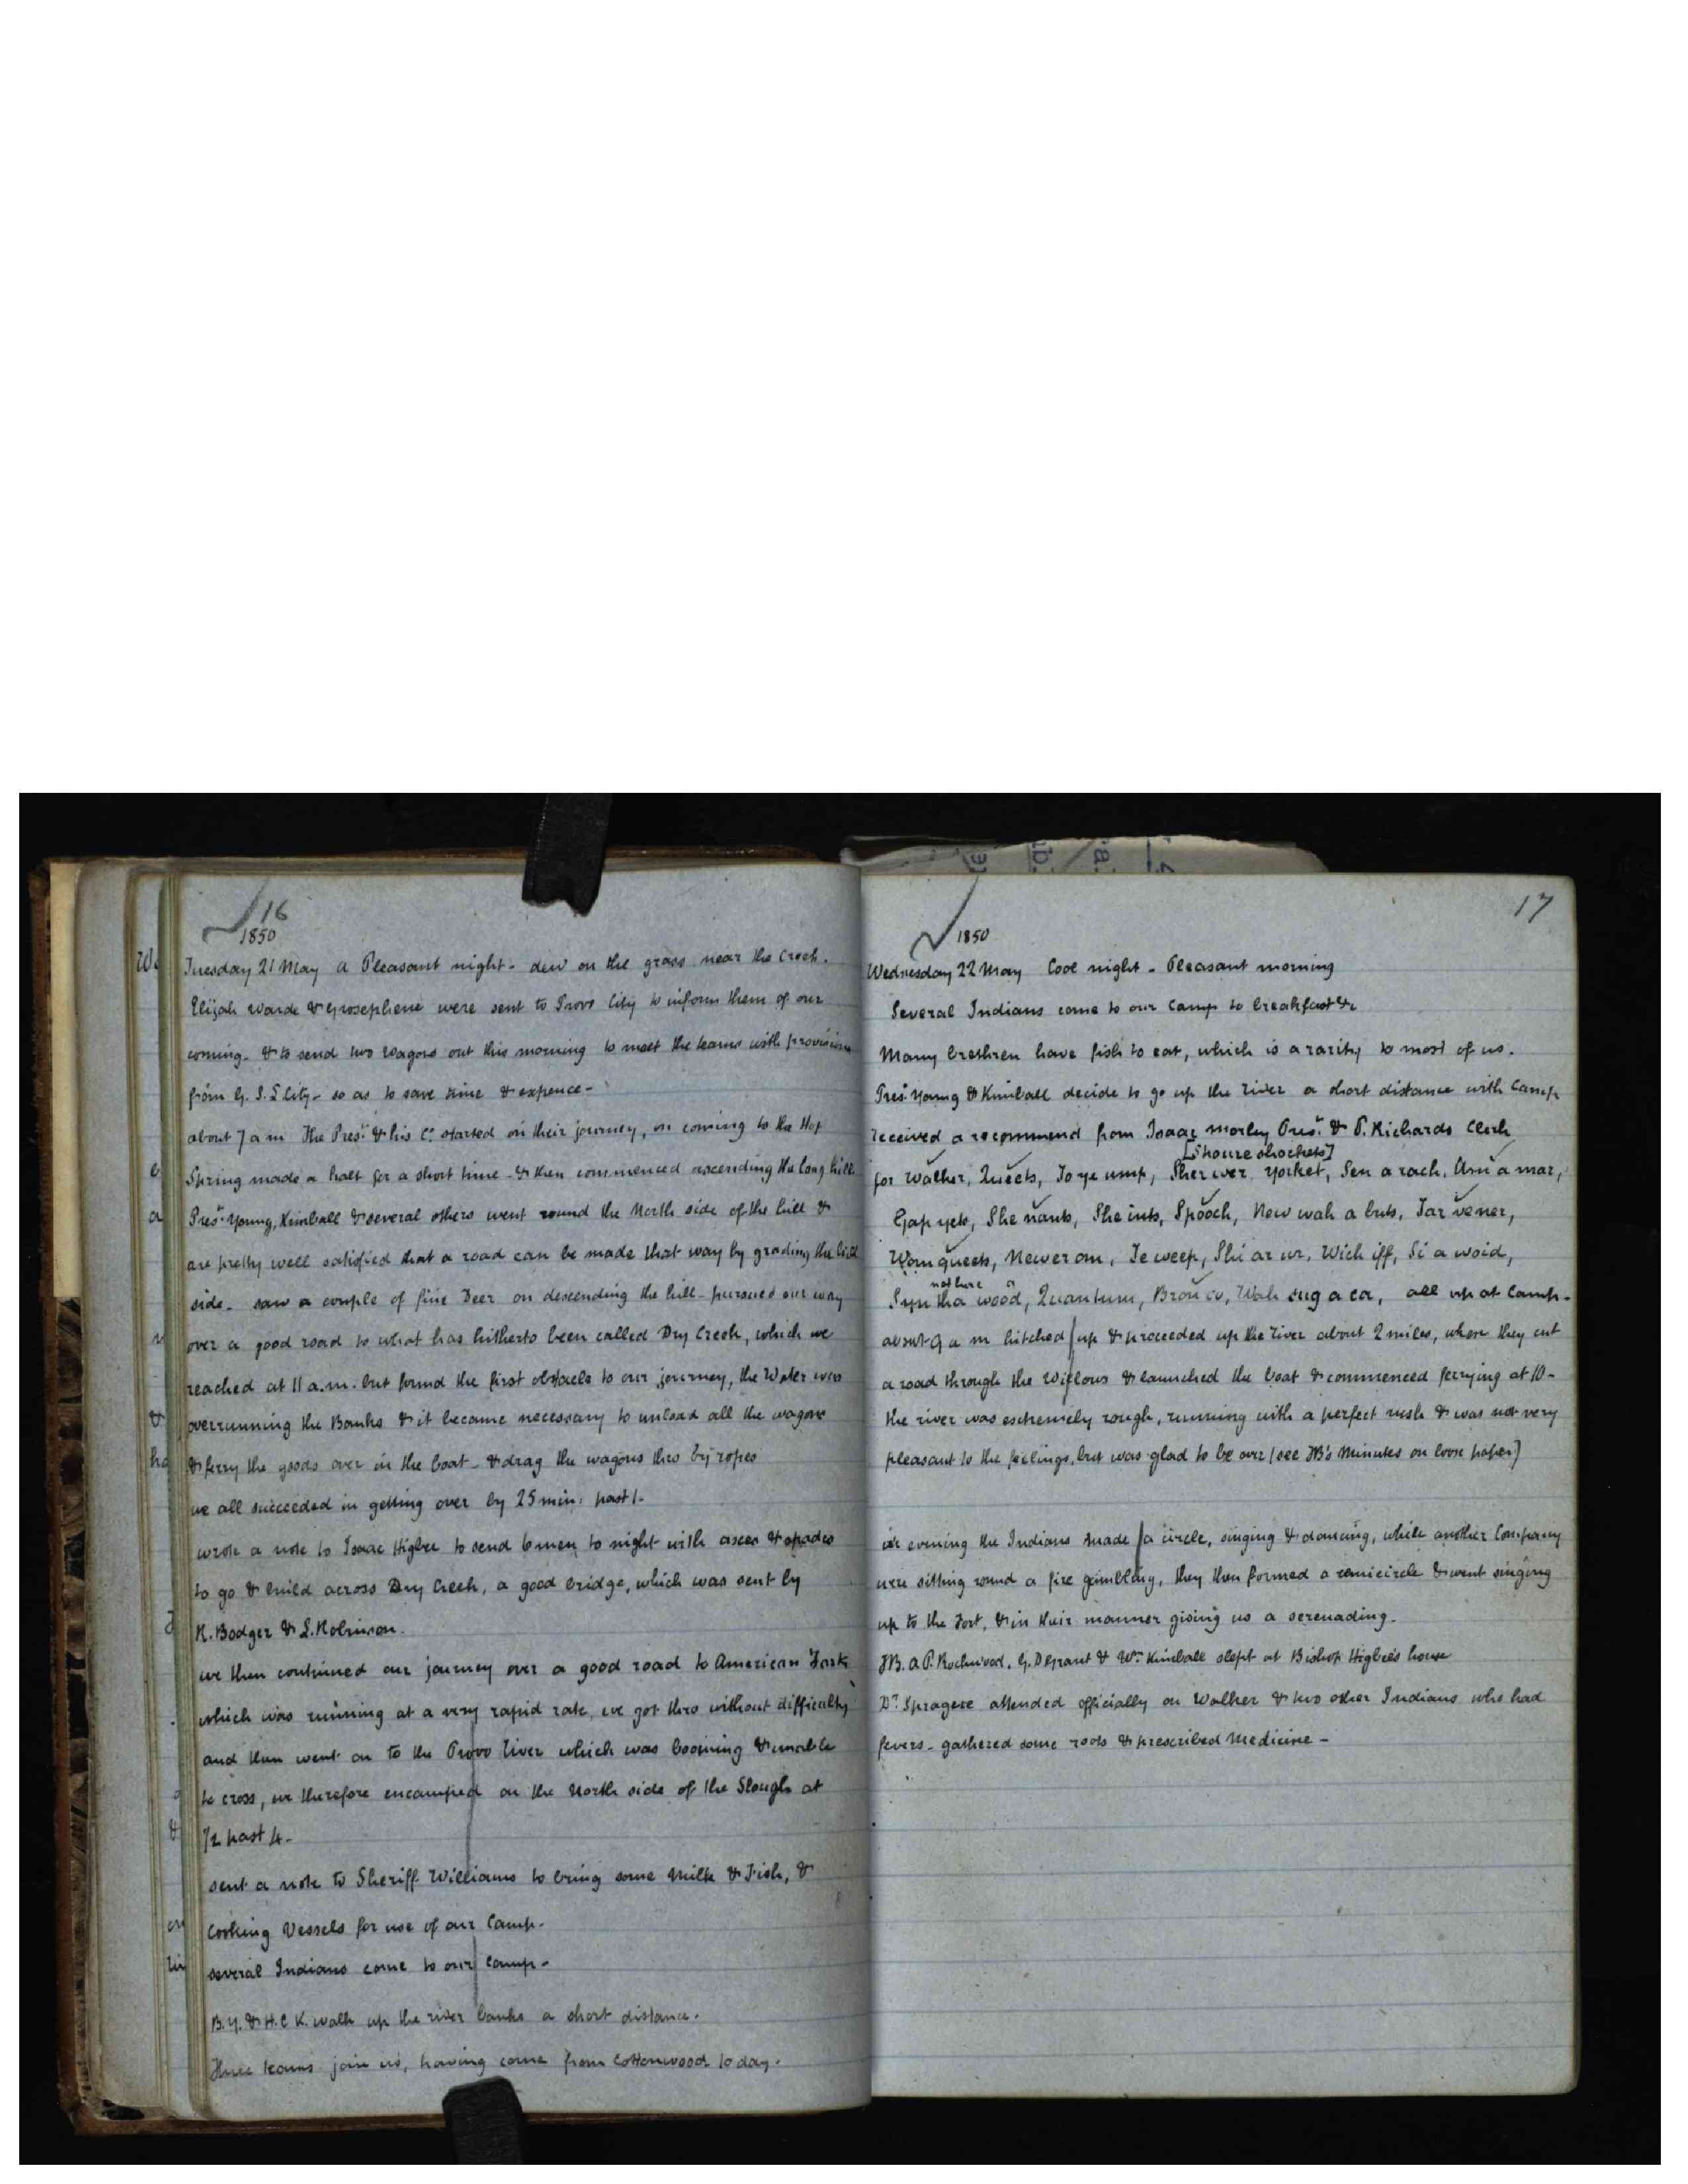 16
1850
Tuesday 21 May a Pleasant night - dew on the grass near the Creek.
Elijah Warde & Grosephene were sent to Provo City to inform them of our
coming - & to send two wagons out this morning to meet the teams with provisions
from G. S. L City - so as to save time & expence -
about 7 a m The Prest. & his Co. started on their journey, on coming to the Hot
Spring made a halt for a short time - & then commenced ascending the long hill
Prest. Young, Kimball & several others went round the North side of the hill &
are pretty well satisfied that a road can be made that way by grading the hill
side - saw a couple of fine Deer on descending the hill - pursued our way
over a good road to what has hitherto been called Dry Creek, which we
reached at 11 a.m. but found the first obstacle to our journey, the Water was
overrunning the Banks & it became necessary to unload all the wagons
& ferry the goods over in the boat - & drag the wagons thro by ropes
we all succeeded in getting over by 25 min: past 1 -
wrote a note to Isaac Higbee to send 6 men to night with axes & spades
to go & build across Dry Creek, a good bridge, which was sent by
R. Bodger & L. Robinson.
we then continued our journey over a good road to American Fork
which was running at a very rapid rate, we got thro without difficulty
and then went on to the Provo River which was booming & unable
to cross, we therefore encamped on the North side of the Slough at
1/2 past 4 -
sent a note to Sheriff Williams to bring some Milk & Fish, &
Cooking Vessels for use of our Camp -
several Indians come to our Camp -
B. Y. & H. C K. walk up the river banks a short distance.
Three teams join us, having come from Cottonwood to day.
17
1850
Wednesday 22 May Cool night - Pleasant morning
Several Indians come to our Camp to breakfast &c
Many brethren have fish to eat, which is a rarity to most of us.
Prest. Young & Kimball decide to go up the river a short distance with Camp
received a recommend from Isaac Morley Prest. & P. Richards Clerk
[Shouze shockets]
for Walker, Queets, To ye ump, Sher wer yocket, Sen a rach, Am a mar,
Gap yets, She nants, She ints, Spooch, New wah a buts, Tar vener,
Wom queets, Newer om, Te weep, Shi ar ur, Wich iff, Si a woid,
not here
Syn tha wood, Quantum, Bron co, Wah sug a ca, all up at Camp -
about 9 a m hitched up & proceeded up the river about 2 miles, where they cut
a road through the Willows & launched the boat & commenced ferrying at 10 -
the river was extremely rough, running with a perfect rush & was not very
pleasant to the feelings, but was glad to be over (see JB's Minutes on loose paper)
in evening the Indians made a circle, singing & dancing, while another Company
were sitting round a fire gambling, they then formed a semicircle & went singing
up to the Fort, & in their manner giving us a serenading.
JB. A P. Rockwood, G. D Grant & Wm. Kimball slept at Bishop Higbee's house
Dr. Sprague attended officially on Walker & two other Indians who had
fevers - gathered some roots & prescribed Medicine -